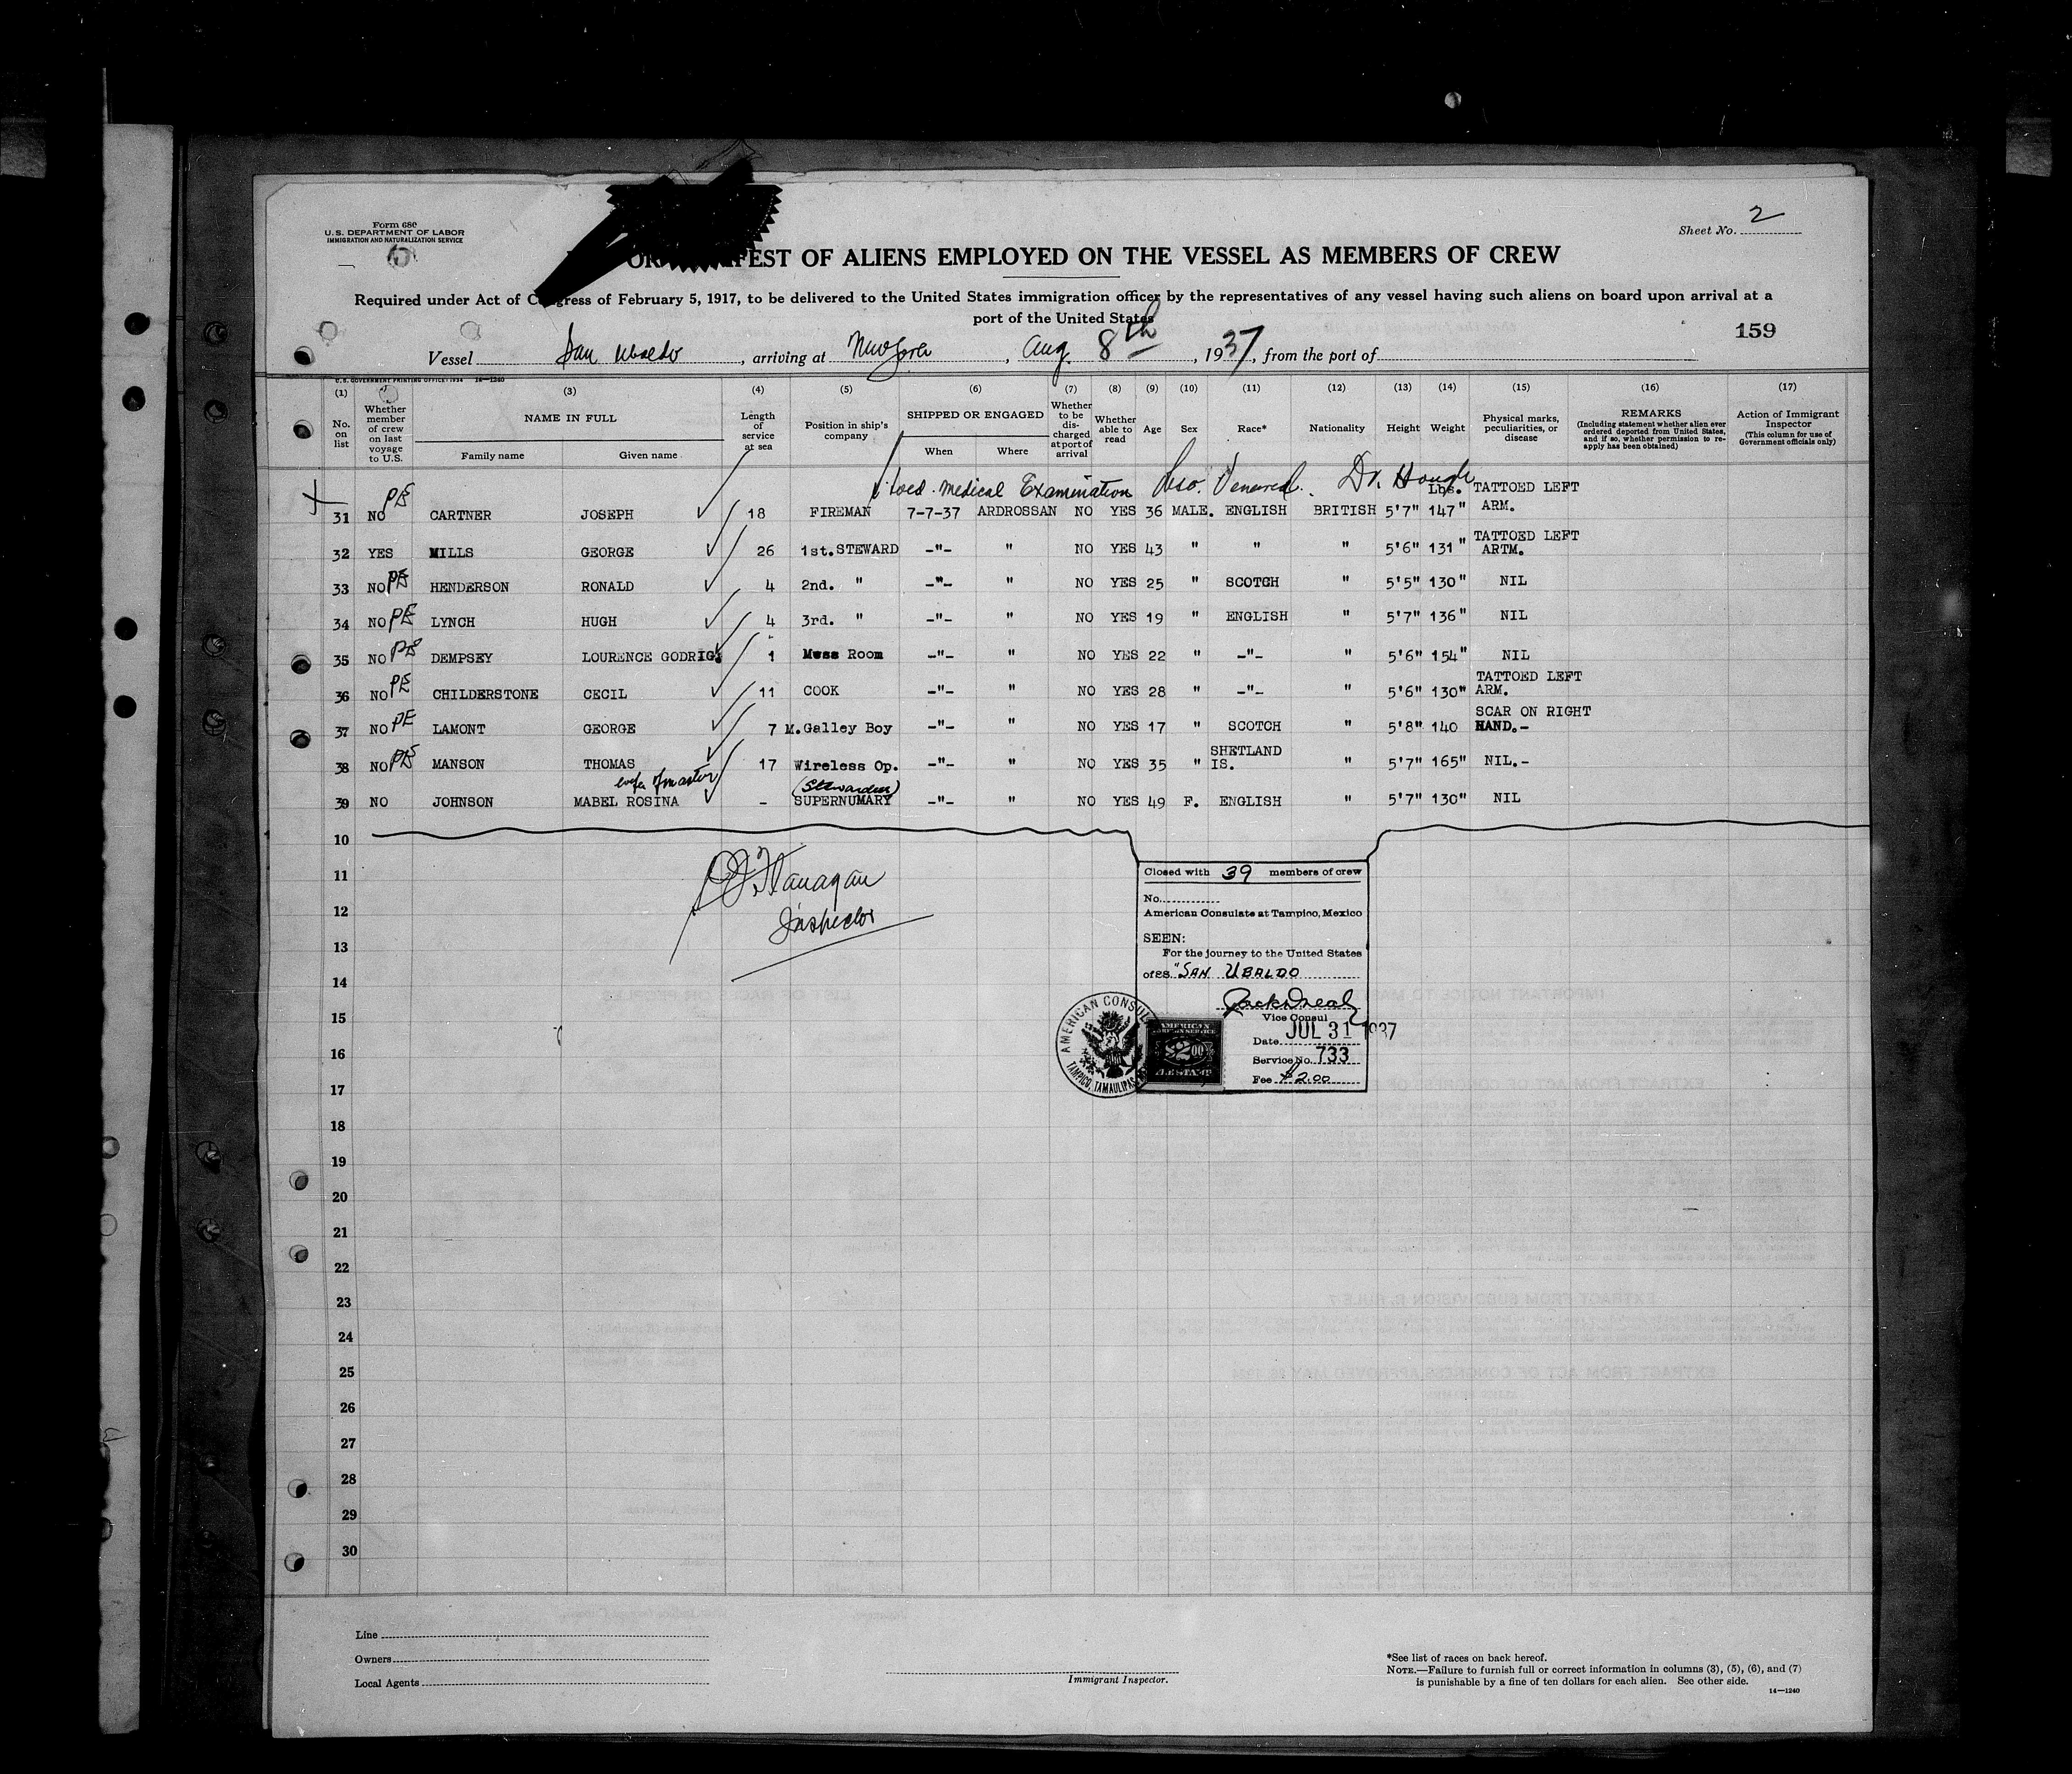 Form 680
U.S. DEPARTMENT OF LABOR
IMMIGRATION AND NATURALIZATION SERVICE
Sheet No. 2
FEST OF ALIENS EMPLOYED ON THE VESSEL AS MEMBERS OF CREW
Required under Act of Congress of February 5, 1917, to be delivered to the United States immigration officer by the representatives of any vessel having such aliens on board upon arrival at a
port of the United States
159
Vessel San Ubaldo, arriving at New York, Aug. 8th, 1937, from the port of
U.S. GOVERNMENT PRINTING OFFICE: 1934 14—1240
(1) (3) (4) (5) (6) (7) (8) (9) (10) (11) (12) (13) (14) (15) (16) (17)
No. on list
Whether member of crew on last voyage to U.S.
NAME IN FULL
Family name Given name
Length of service at sea
Position in ship's company
SHIPPED OR ENGAGED
When Where
Whether to be discharged at port of arrival
Whether able to read
Age
Sex
Race*
Nationality
Height
Weight
Physical marks, peculiarities, or disease
REMARKS
(Including statement whether alien ever ordered deported from United States, and if so, whether permission to reapply has been obtained)
Action of Immigrant Inspector
(This column for use of Government officials only)
Medical Examination Dr. Hough
31 NO PE CARTNER JOSEPH 18 FIREMAN 7-7-37 ARDROSSAN NO YES 36 MALE. ENGLISH BRITISH 5'7" 147" Lbs. TATTOED LEFT ARM.
32 YES MILLS GEORGE 26 1st. STEWARD -"- " NO YES 43 " " " 5'6" 131" TATTOED LEFT ARTM.
33 NO PE HENDERSON RONALD 4 2nd. " -"- " NO YES 25 " SCOTCH " 5'5" 130" NIL
34 NO PE LYNCH HUGH 4 3rd. " -"- " NO YES 19 " ENGLISH " 5'7" 136" NIL
35 NO PE DEMPSEY LOURENCE GODRIG. 1 Mess Room -"- " NO YES 22 " -"- " 5'6" 154" NIL
36 NO PE CHILDERSTONE CECIL 11 COOK -"- " NO YES 28 " -"- " 5'6" 130" TATTOED LEFT ARM.
37 NO PE LAMONT GEORGE 7 M.Galley Boy -"- " NO YES 17 " SCOTCH " 5'8" 140 SCAR ON RIGHT HAND.-
38 NO PE MANSON THOMAS 17 Wireless Op. -"- " NO YES 35 " SHETLAND IS. " 5'7" 165" NIL.-
wife of master (Stewardess)
39 NO JOHNSON MABEL ROSINA - SUPERNUMARY -"- " NO YES 49 F. ENGLISH " 5'7" 130" NIL
10
11
12
13
14
15
16
17
18
19
20
21
22
23
24
25
26
27
28
29
30
Flanagan
Inspector
Closed with 39 members of crew
No.
American Consulate at Tampico, Mexico
SEEN:
For the journey to the United States
of SS. "SAN UBALDO
Vice Consul
Date JUL 31 1937
Service No. 733
Fee $2.00
AMERICAN CONSUL
TAMPICO, TAMAULIPAS
AMERICAN
FOREIGN SERVICE
$2.00
FEE STAMP
Line
Owners
Local Agents
Immigrant Inspector.
*See list of races on back hereof.
NOTE.—Failure to furnish full or correct information in columns (3), (5), (6), and (7)
is punishable by a fine of ten dollars for each alien. See other side.
14—1240